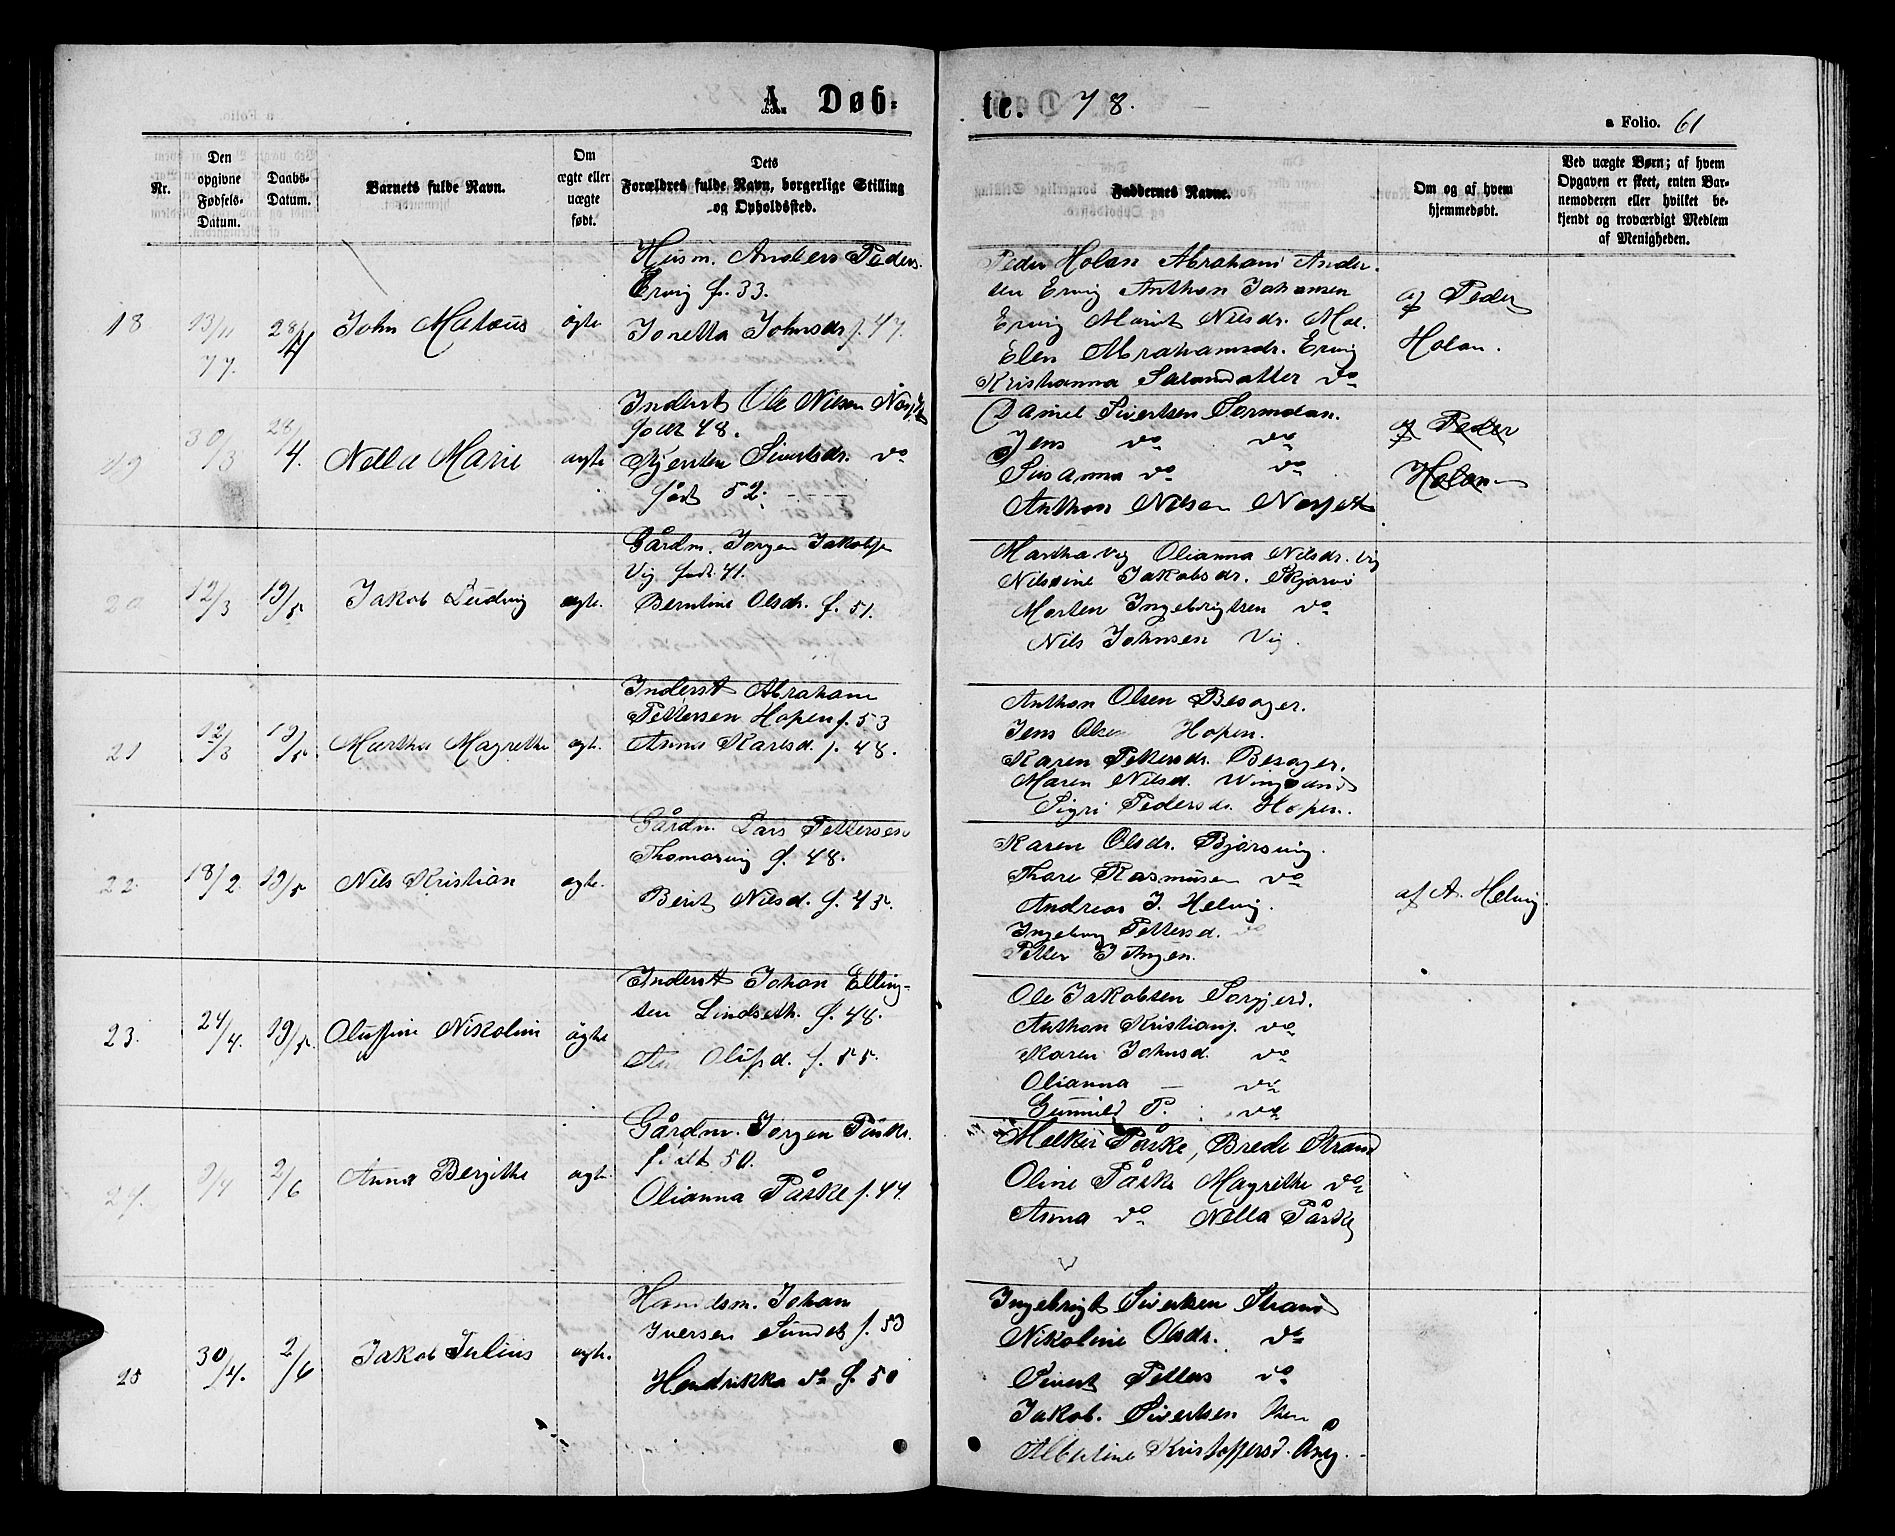 A. Døb-
te. 78.
a Folio. 61
Nr.
Den opgivne Fødsels-Datum.
Daabs-Datum.
Barnets fulde Navn.
Om ægte eller uægte født.
Dets Forældres fulde Navn, borgerlige Stilling og Opholdssted.
Faddernes Navne.
Om og af hvem hjemmedøbt.
Ved uægte Børn; af hvem Opgaven er skeet, enten Barnemoderen eller hvilket bekjendt og troværdigt Medlem af Menigheden.
18
13/11 77.
28/4
John
ægte
Husm. Anders Peders.
Ervig f. 33.
Jonetta Johnsdr f. 47.
Peder Holan Abraham Ander-
sen Ervig Anthon Johansen
Ervig Marit Nilsdr. Moe.
Elen Abrahamsdr. Ervig
Kristianna do
af Peder
Holan.
19
30/3
28/4.
Nella Marie
ægte
Inderst Ole Nilsen
født 48.
Sivertsdr. do
født 52.
Daniel Sivertsen
Jens do do
Susanna do do
Anthon Nilsen
af Peder
Holan
20
12/3
19/5
Jakob Ludvig
ægte.
Gårdm. Jørgen Jakobsen
Vig født 41.
Berntine Olsdr. f. 51.
Martha Vig Olianna Nilsdr. Vig
Nilsine Jakobsdr. Skjærvø
Morten Ingebrigtsen do
Nils Johnsen Vig.
21
12/3
19/5.
Martha Magrethe
ægte.
Inderst Abraham
Pettersen Hopen f. 53
Anna Karlsd. f. 48.
Anthon Olsen Besager.
Jens Olsen Hopen.
Karen Pettersdr. Besager.
Maren Nilsd. Wingsand
Sigri Pedersdr. Hopen.
22.
18/2.
19/5
Nils Kristian
ægte.
Gårdm. Lars Pettersen
Thomasvig f. 48.
Berit Nilsd. f. 43.
Karen Olsdr. Bjørsvig.
Thore Rasmusen do
Andreas J. Helvig.
Ingeborg Pettersd. do
Petter
af A. Helvig.
23.
24/4.
19/5.
Oluffine Nikoline
ægte
Inderst Johan Elling-
sen Lindseth. f. 48.
Olifsd. f. 55.
Ole Jakobsen Sørgjerd.
Anthon Kristians. do
Karen Johnsd. do
Olianna — do
Gunnild P. do
24.
9/4
2/6
Anna Bergithe
ægte
Gårdm. Jørgen Påske.
født 50.
Olianna Påske f. 44
Melkior Påske, Brede Strand
Oline Påske Magrethe do
Anna do Nella Påske
25
30/4.
2/6
Jakob Julius
ægte.
Handsm. Johan
Iversen Sundet f. 53
Hendrikka do f. 50
Ingebrigt Sivertsen Strand
Nikoline Olsdr. do
Sivert Petters do
Jakob. Sivertsen
Albertine Kristoffersd.